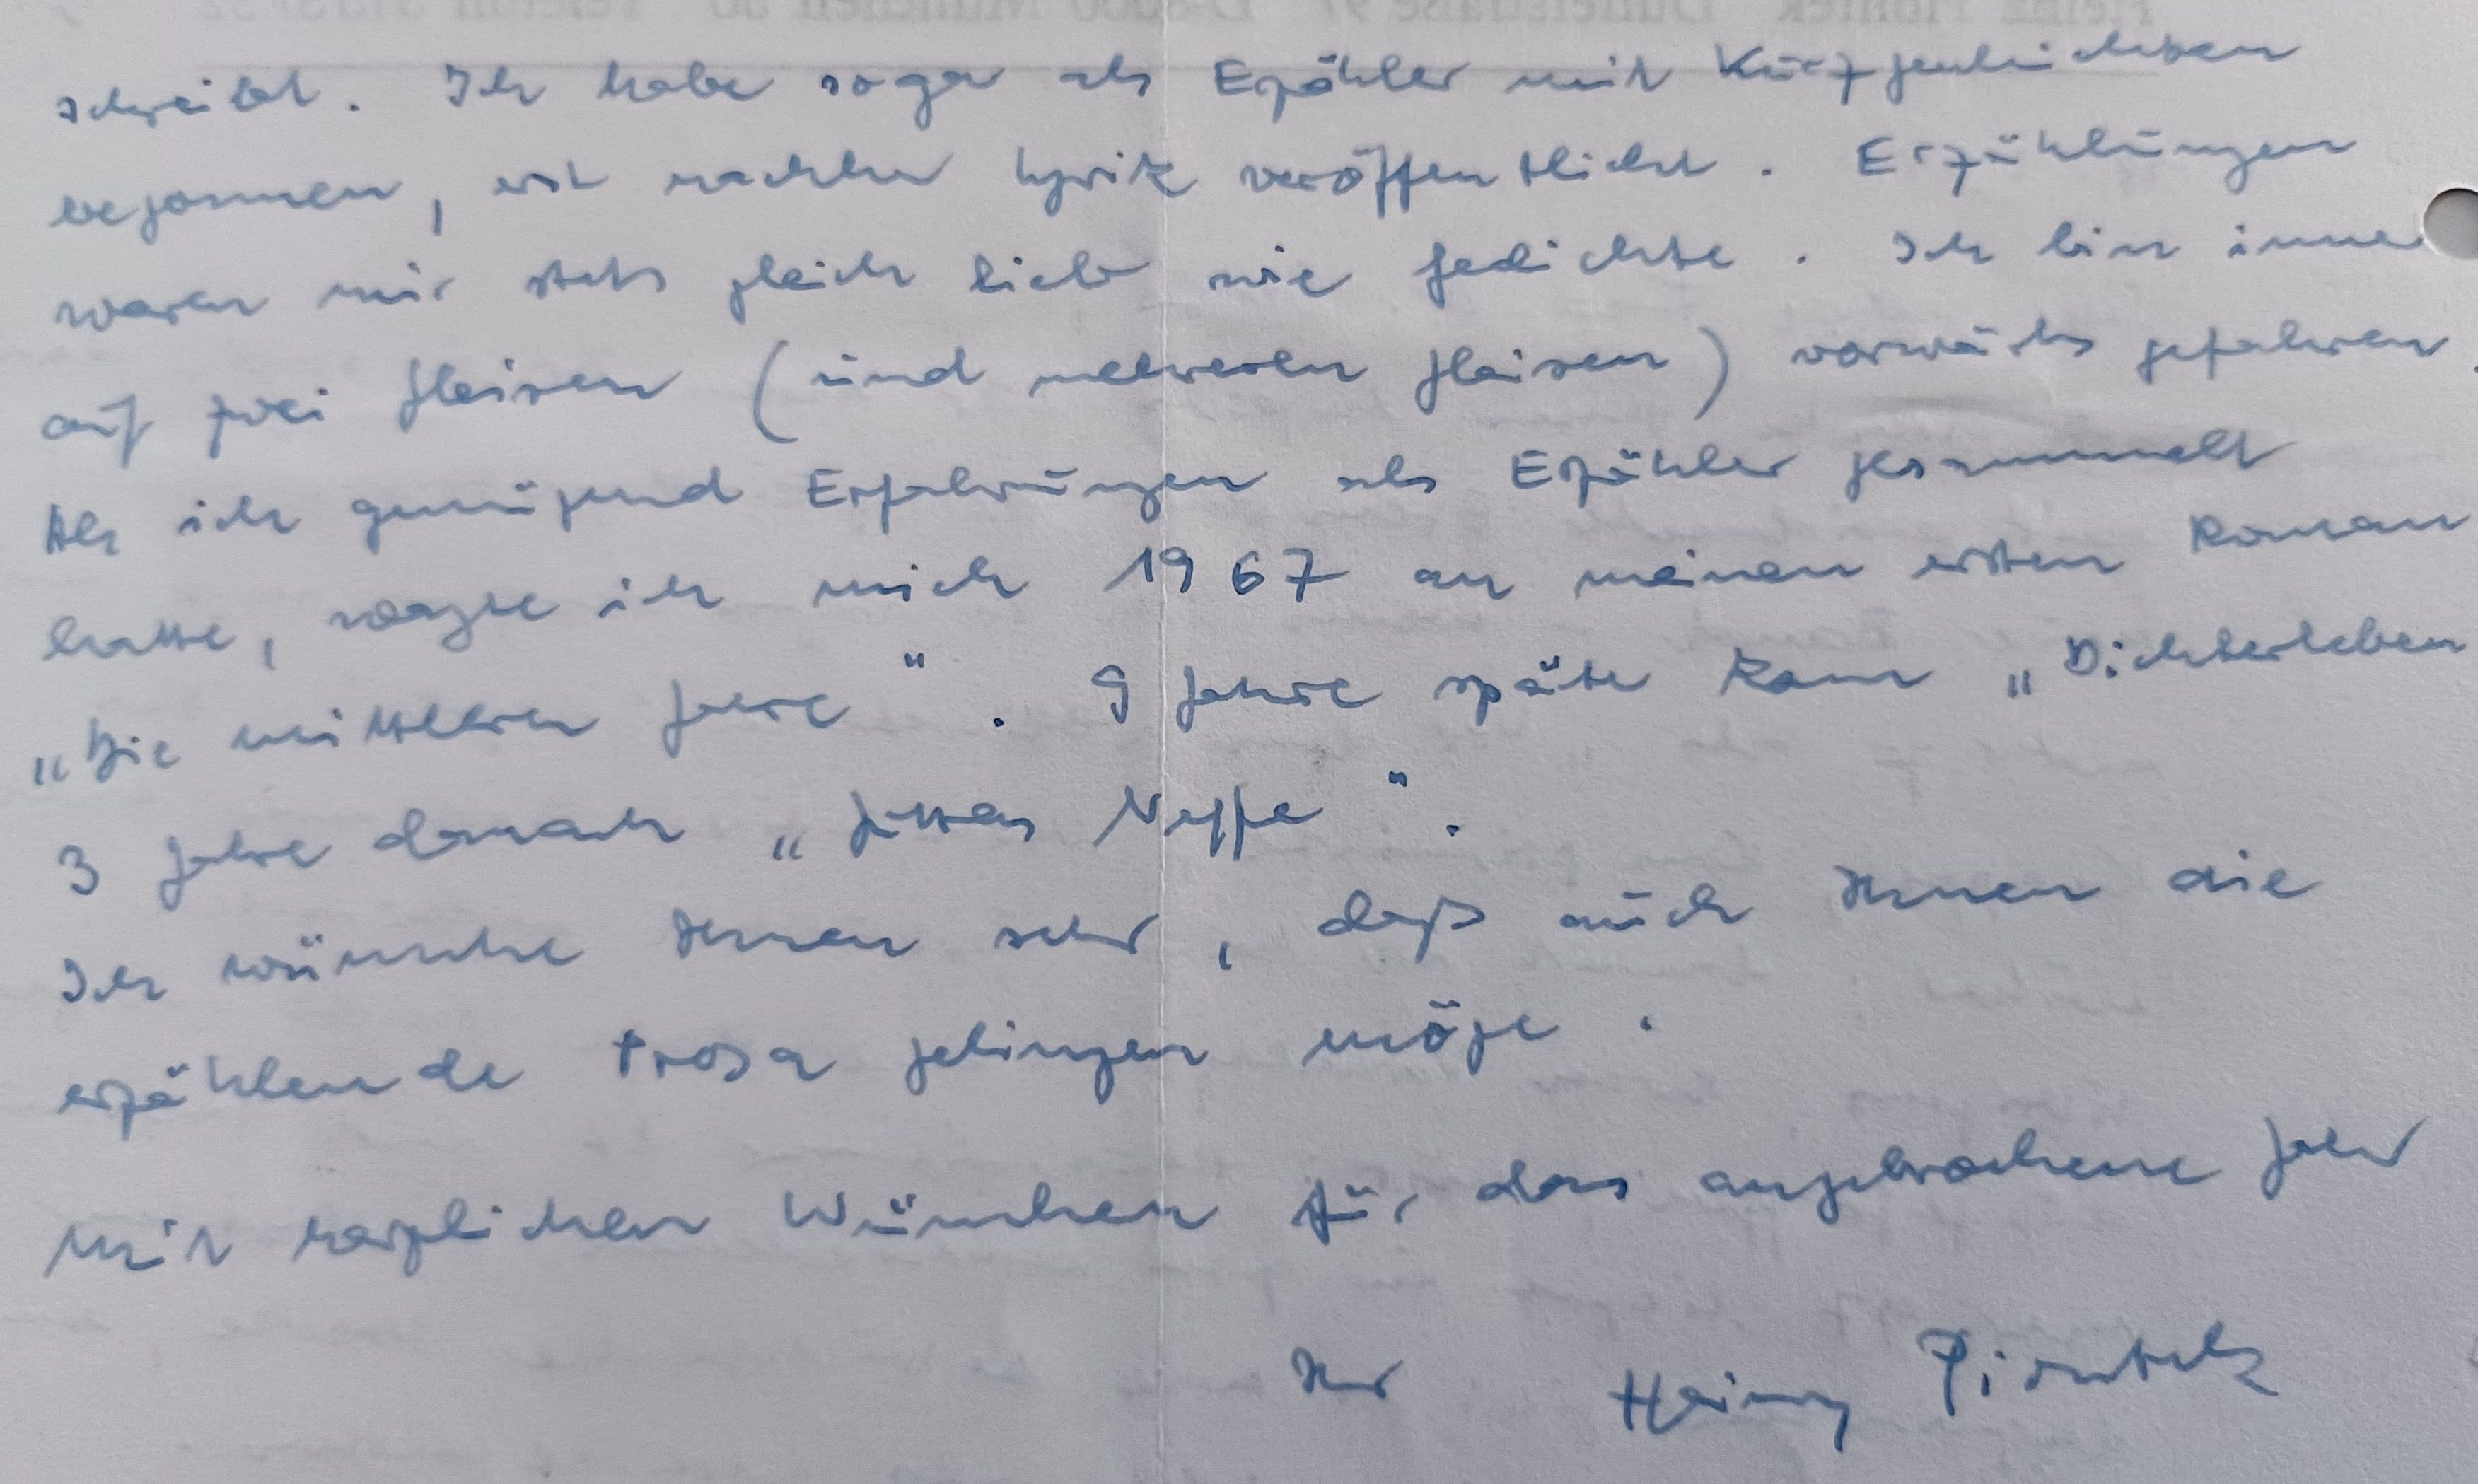 Heinz Piontek Dülferstraße 97 D-8000 München 50 Telefon
schreibt. Ich habe sogar als Erzähler mit Kurzgeschichten
begonnen, erst nachher Lyrik veröffentlicht. Erzählungen
waren mir stets gleich lieb wie Gedichte. Ich bin immer
auf zwei Gleisen (und mehreren Gleisen) vorwärts gefahren.
Als ich genügend Erfahrungen als Erzähler gesammelt
hatte, wagte ich mich 1967 an meinen ersten Roman
„Die mittleren Jahre". 9 Jahre später kam „Dichterleben
3 Jahre danach „Juttas Neffe".
Ich wünsche Ihnen sehr, daß auch Ihnen die
erzählende Prosa gelingen möge.
Mit herzlichen Wünschen für das angebrochene Jahr
Ihr Heinz Piontek